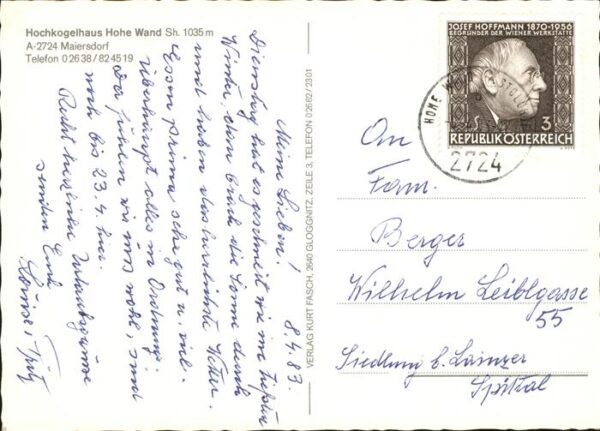 Hochkogelhaus Hohe Wand Sh. 1035 m
A-2724 Maiersdorf
Telefon 0 26 38 / 82 45 19
8.4.83.
Meine Lieben!
Dienstag hat es geschneit wie im tiefsten
Winter, dann brach die Sonne durch
und haben das herrlichste Wetter.
Essen prima sehr gut u. viel.
Überhaupt alles in Ordnung!
Da fühlen wir uns wohl, sind
noch bis 23.4. hier.
Recht herzliche Urlaubsgrüsse
senden Euch
Fritz
VERLAG KURT FASCH, 2640 GLOGGNITZ, ZEILE 3, TELEFON 02662/2301
JOSEF HOFFMANN 1870-1956
BEGRÜNDER DER WIENER WERKSTÄTTE
3
REPUBLIK ÖSTERREICH
HOHE
2724
An
Fam.
Berger
Wilhelm Leiblgasse
55
Siedlung b. Lainzer
Spital